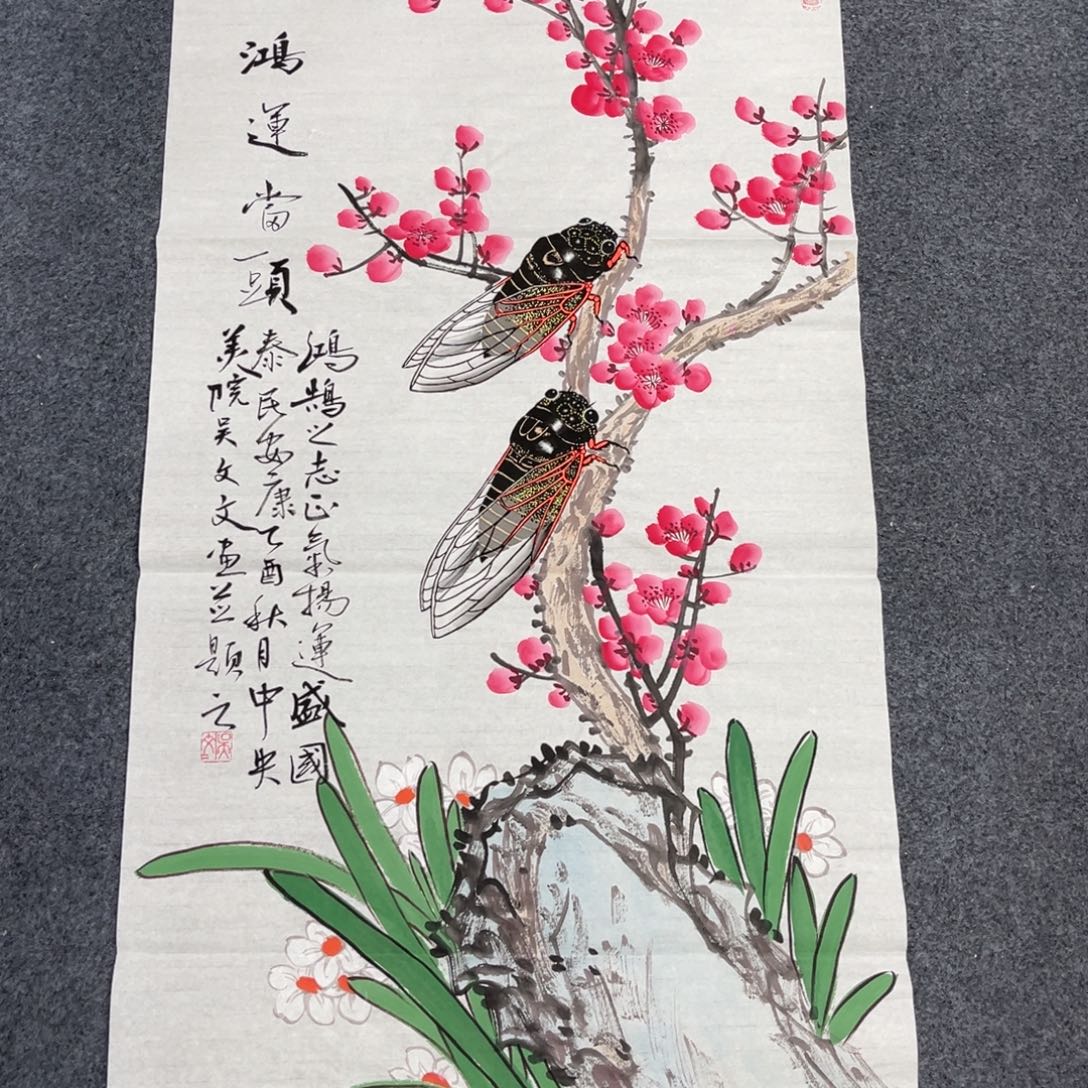 鴻運當頭
鴻鵠之志正氣揚運盛國
泰民安康乙酉秋月中央
美院吴文文画並題之